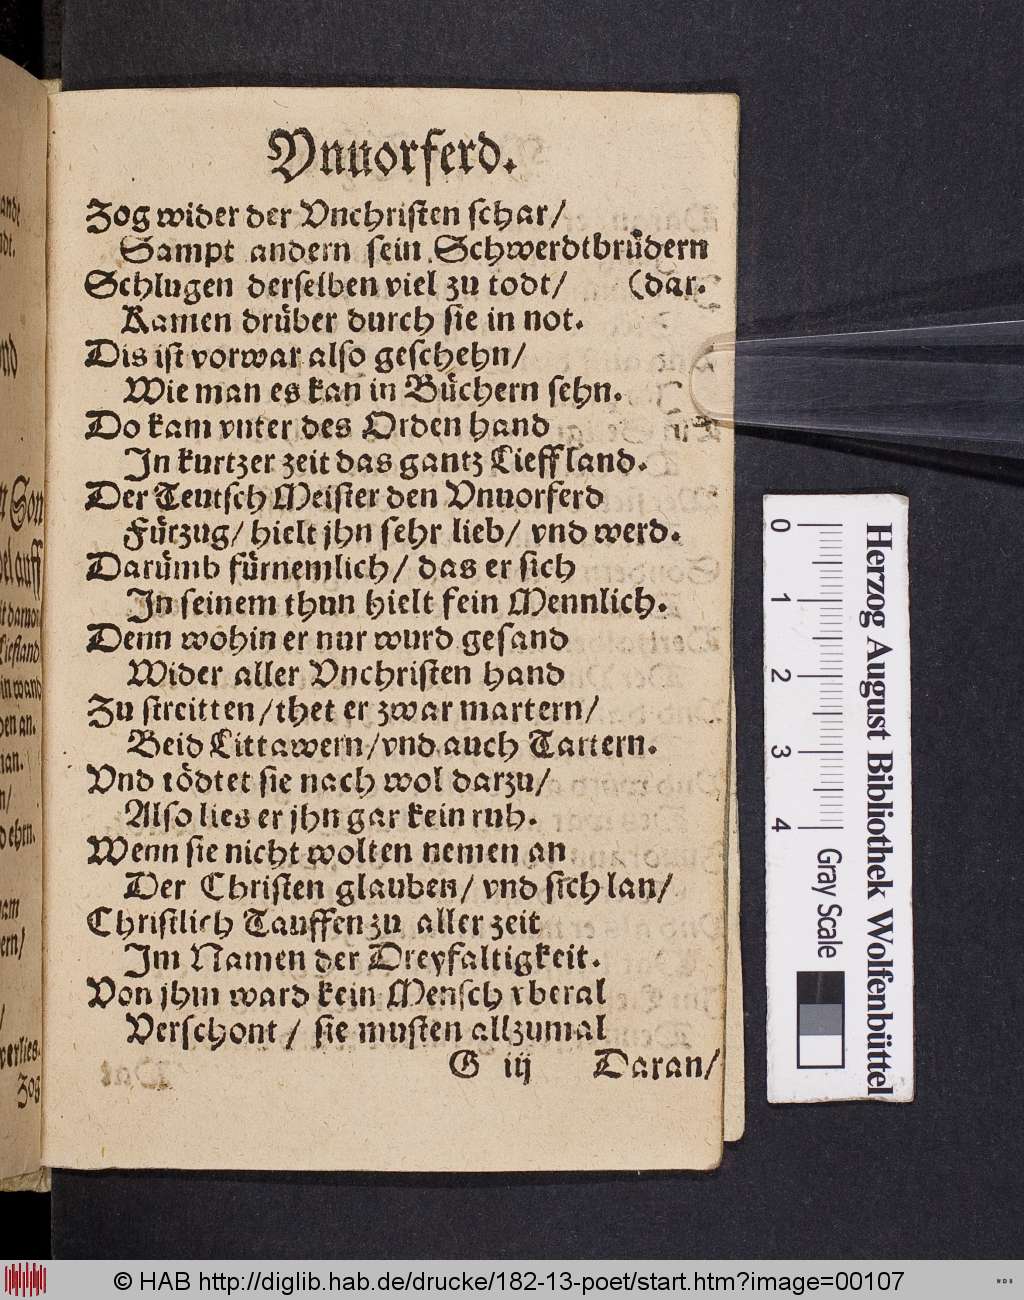 Vnuorferd.
Zog wider der Vnchristen schar/
Sampt andern sein Schwerdtbrüdern
Schlugen derselben viel zu todt/ (dar.
Kamen drüber durch sie in not.
Dis ist vorwar also geschehn/
Wie man es kan in Büchern sehn.
Do kam vnter des Orden hand
In kurtzer zeit das gantz Lieffland.
Der Teutsch Meister den Vnuorferd
Fürzug/ hielt jhn sehr lieb/ vnd werd.
Darümb fürnemlich/ das er sich
In seinem thun hielt fein Mennlich.
Denn wohin er nur wurd gesand
Wider aller Vnchristen hand
Zu streitten/thet er zwar martern/
Beid Littawern/vnd auch Tartern.
Vnd tödtet sie nach wol darzu/
Also lies er jhn gar kein ruh.
Wenn sie nicht wolten nemen an
Der Christen glauben/ vnd sich lan/
Christlich Tauffen zu aller zeit
Im Namen der Dreyfaltigkeit.
Von jhm ward kein Mensch vberal
Verschont / sie musten allzumal
G iij Daran/
ande
dt.
nd
n Son
bel auff
it daruon
Liefland
in wand
ben an.
man.
n/
d ehen.
nam
ern/
/
verlies.
Zog
0 1 2 3 4
Gray Scale
Herzog August Bibliothek Wolfenbüttel
© HAB http://diglib.hab.de/drucke/182-13-poet/start.htm?image=00107